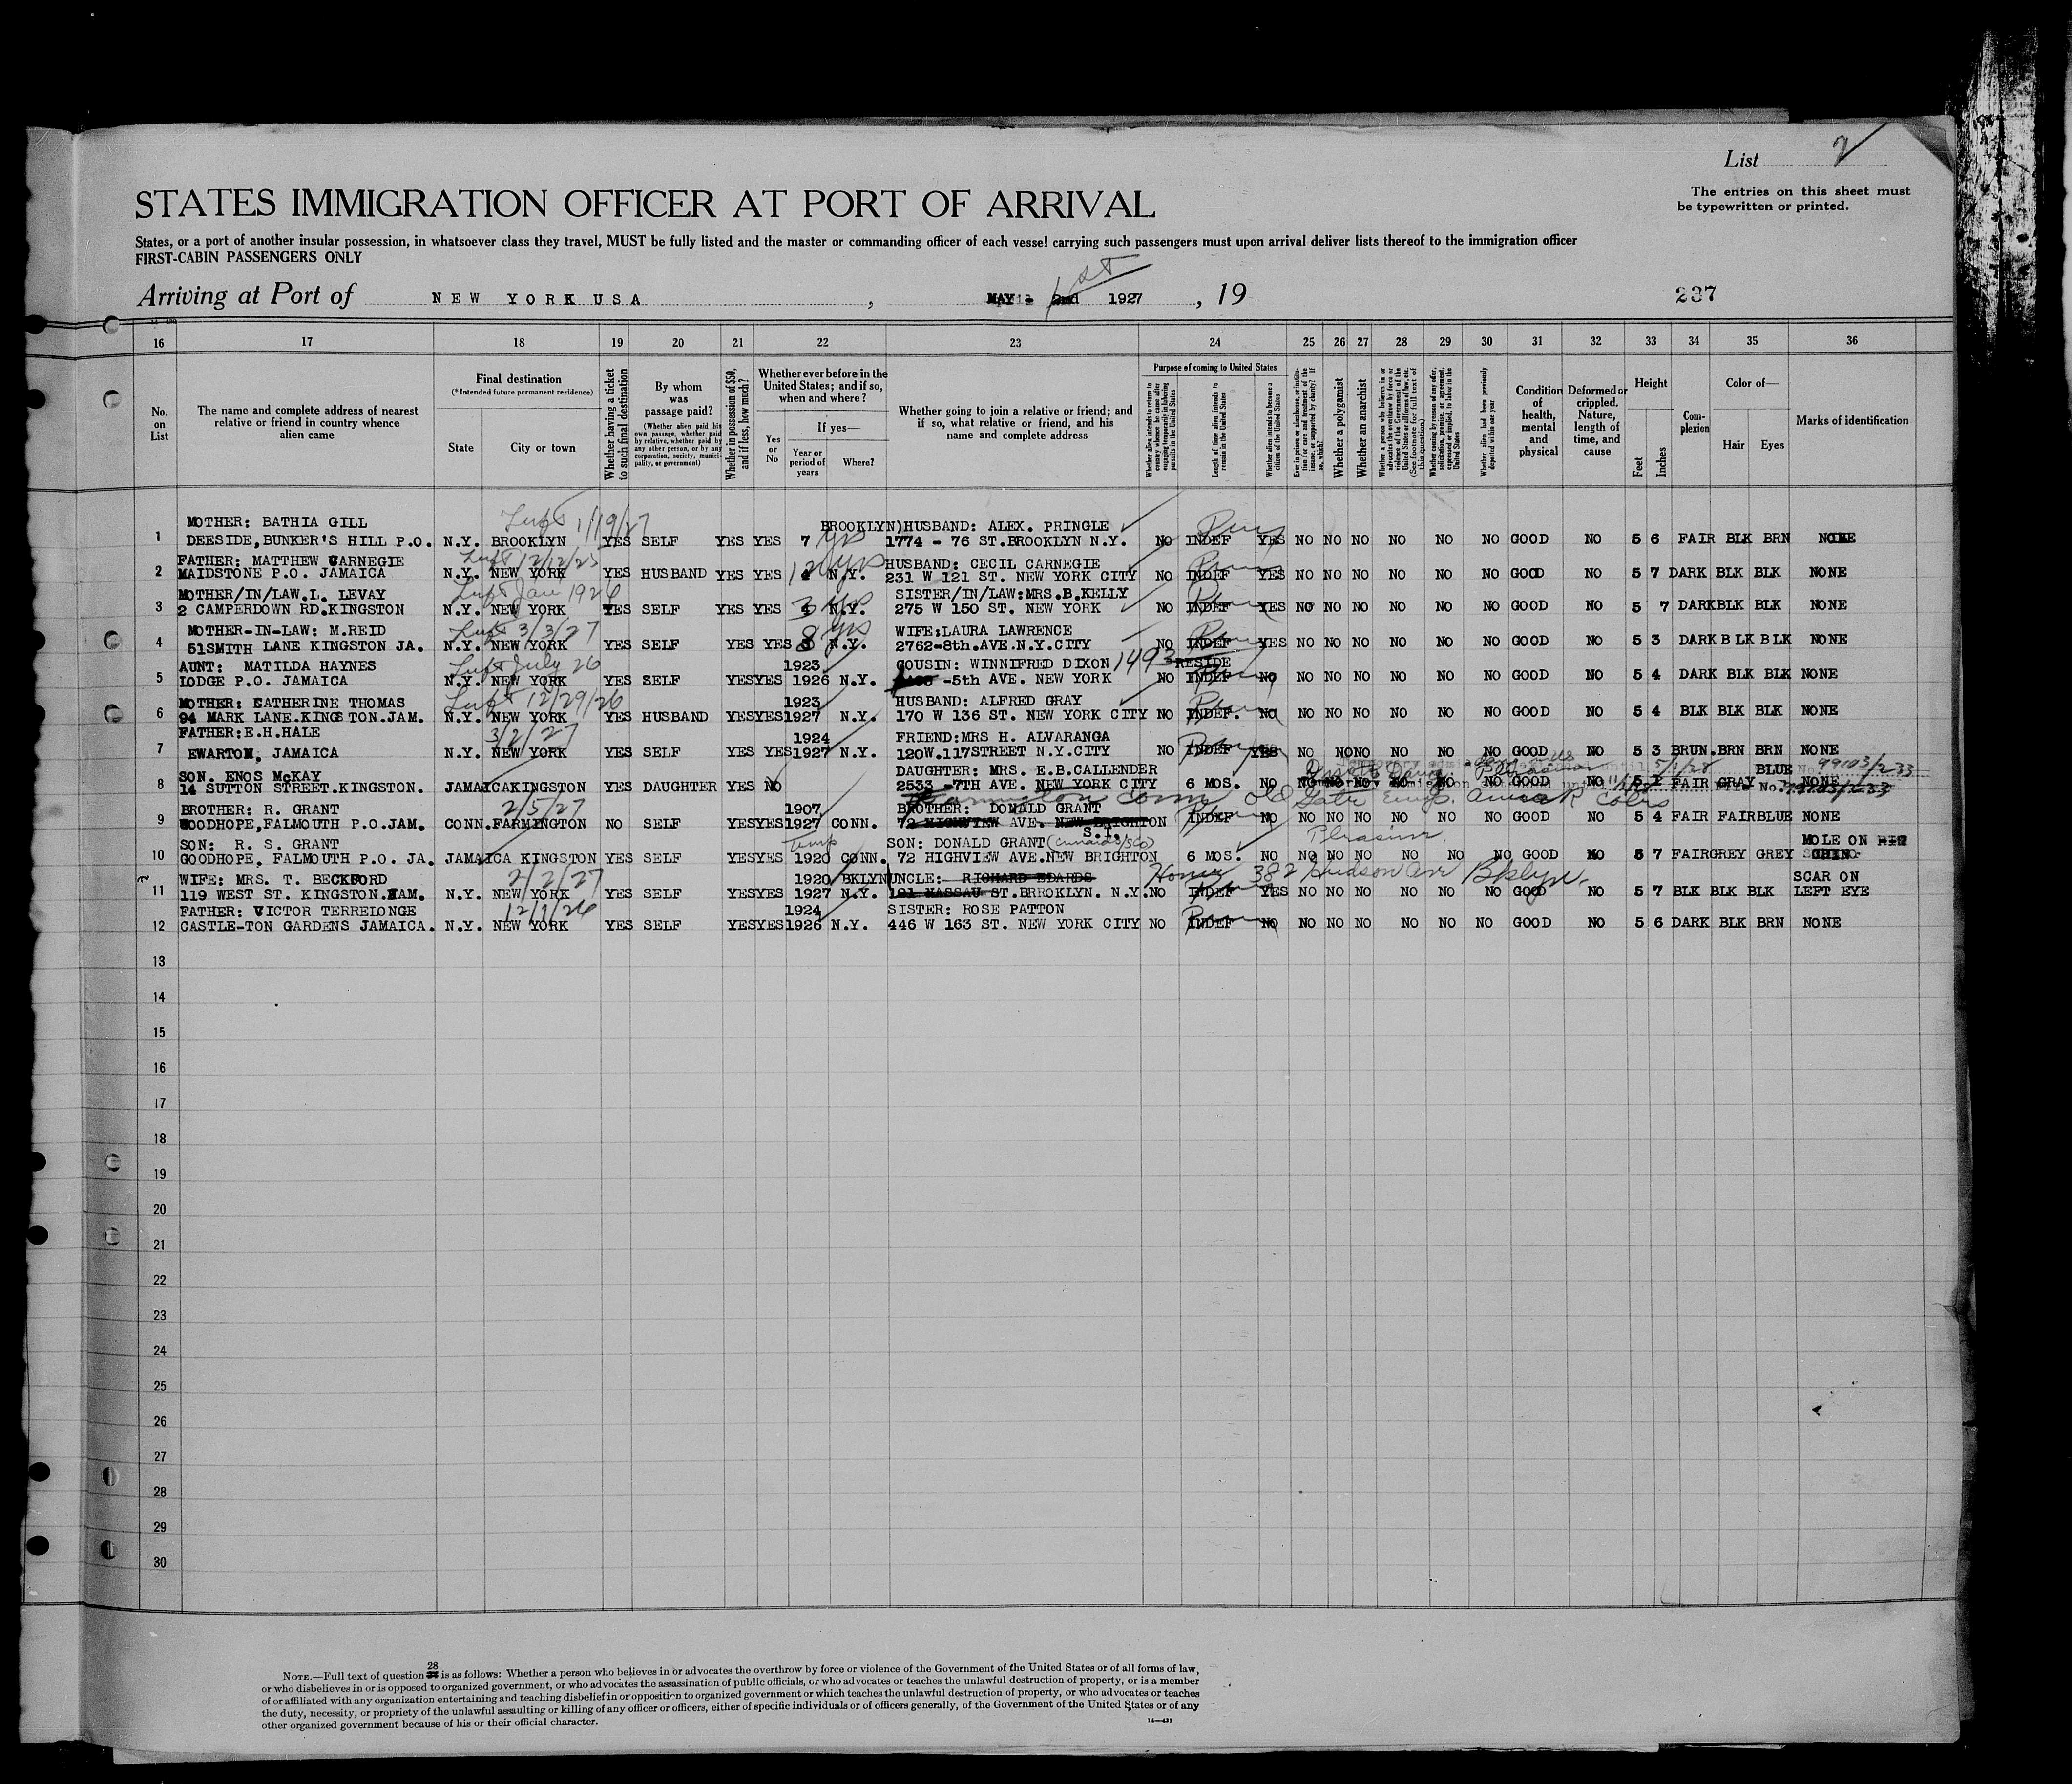 List 2
The entries on this sheet must
be typewritten or printed.
STATES IMMIGRATION OFFICER AT PORT OF ARRIVAL
States, or a port of another insular possession, in whatsoever class they travel, MUST be fully listed and the master or commanding officer of each vessel carrying such passengers must upon arrival deliver lists thereof to the immigration officer
FIRST-CABIN PASSENGERS ONLY
Arriving at Port of NEW YORK USA , MAY 1st 2nd 1927 , 19
237
16 17 18 19 20 21 22 23 24 25 26 27 28 29 30 31 32 33 34 35 36
No. on List
The name and complete address of nearest relative or friend in country whence alien came
Final destination
(*Intended future permanent residence)
State City or town
Whether having a ticket to such final destination
By whom was passage paid?
(Whether alien paid his own passage, whether paid by relative, whether paid by any other person, or by any corporation, society, municipality, or government)
Whether in possession of $50, and if less, how much?
Whether ever before in the United States; and if so, when and where?
Yes or No
If yes—
Year or period of years
Where?
Whether going to join a relative or friend; and if so, what relative or friend, and his name and complete address
Purpose of coming to United States
Whether alien intends to return to country whence he came after engaging temporarily in laboring pursuits in the United States
Length of time alien intends to remain in the United States
Whether alien intends to become a citizen of the United States
Whether a polygamist
Whether an anarchist
Condition of health, mental and physical
Deformed or crippled. Nature, length of time, and cause
Height
Feet Inches
Complexion
Color of—
Hair Eyes
Marks of identification
MOTHER: BATHIA GILL Left 1/19/27 BROOKLYN) HUSBAND: ALEX. PRINGLE
1 DEESIDE,BUNKER'S HILL P.O. N.Y. BROOKLYN YES SELF YES YES 7 yrs 1774 - 76 ST.BROOKLYN N.Y. NO INDEF YES NO NO NO NO NO NO GOOD NO 5 6 FAIR BLK BRN NONE
FATHER: MATTHEW CARNEGIE Left 12/12/25 HUSBAND: CECIL CARNEGIE
2 MAIDSTONE P.O. JAMAICA N.Y. NEW YORK YES HUSBAND YES YES yrs N.Y. 231 W 121 ST. NEW YORK CITY NO INDEF YES NO NO NO NO NO NO GOOD NO 5 7 DARK BLK BLK NONE
MOTHER/IN/LAW.L. LEVAY Left Jan 1926 SISTER/IN/LAW:MRS.B.KELLY
3 2 CAMPERDOWN RD.KINGSTON N.Y. NEW YORK YES SELF YES YES 3 yrs N.Y. 275 W 150 ST. NEW YORK NO INDEF YES NO NO NO NO NO NO GOOD NO 5 7 DARK BLK BLK NONE
MOTHER-IN-LAW: M.REID Left 3/3/27 WIFE:LAURA LAWRENCE
4 51SMITH LANE KINGSTON JA. N.Y. NEW YORK YES SELF YES YES 8 yrs N.Y. 2762-8th.AVE.N.Y.CITY NO INDEF YES NO NO NO NO NO NO GOOD NO 5 3 DARK BLK BLK NONE
AUNT: MATILDA HAYNES Left July 26 1923 COUSIN: WINNIFRED DIXON 1493 RESIDE
5 LODGE P.O. JAMAICA N.Y. NEW YORK YES SELF YES YES 1926 N.Y. -5th AVE. NEW YORK NO INDEF NO NO NO NO NO NO NO GOOD NO 5 4 DARK BLK BLK NONE
MOTHER: CATHERINE THOMAS Left 12/29/26 1923 HUSBAND: ALFRED GRAY
6 94 MARK LANE.KINGSTON.JAM. N.Y. NEW YORK YES HUSBAND YES YES 1927 N.Y. 170 W 136 ST. NEW YORK CITY NO INDEF. NO NO NO NO NO NO NO GOOD NO 5 4 BLK BLK BLK NONE
FATHER:E.H.HALE 3/2/27 1924 FRIEND:MRS H. ALVARANGA
7 EWARTON, JAMAICA N.Y. NEW YORK YES SELF YES YES 1927 N.Y. 120W.117STREET N.Y.CITY NO INDEF YES NO NO NO NO NO NO GOOD NO 5 3 BRUN. BRN BRN NONE
SON. ENOS McKAY DAUGHTER: MRS. E.B.CALLENDER Pleasure 5/1/28 BLUE No. 99103/233
8 14 SUTTON STREET.KINGSTON. JAMAICA KINGSTON YES DAUGHTER YES NO 2533 -7TH AVE. NEW YORK CITY 6 MOS. NO NO NO NO NO NO NO GOOD NO FAIR GRAY NONE
BROTHER: R. GRANT 2/5/27 1907 Farmington Conn BROTHER: DONALD GRANT
9 GOODHOPE,FALMOUTH P.O.JAM. CONN. FARMINGTON NO SELF YES YES 1927 CONN. 72 HIGHVIEW AVE. NEW BRIGHTON S.I. INDEF NO NO NO NO NO NO NO GOOD NO 5 4 FAIR FAIR BLUE NONE
SON: R. S. GRANT temp SON: DONALD GRANT Pleasure. MOLE ON
10 GOODHOPE, FALMOUTH P.O. JA. JAMAICA KINGSTON YES SELF YES YES 1920 CONN. 72 HIGHVIEW AVE.NEW BRIGHTON 6 MOS. NO NO NO NO NO NO NO GOOD NO 5 7 FAIR GREY GREY CHIN
WIFE: MRS. T. BECKFORD 2/2/27 1920 BKLYN UNCLE: RICHARD EDARDS Home 382 Hudson Ave Bklyn. SCAR ON
11 119 WEST ST. KINGSTON.JAM. N.Y. NEW YORK YES SELF YES YES 1927 N.Y. 191 NASSAU ST.BRROKLYN. N.Y. NO INDEF YES NO NO NO NO NO NO GOOD NO 5 7 BLK BLK BLK LEFT EYE
FATHER: VICTOR TERRELONGE 12/1/26 1924 SISTER: ROSE PATTON
12 CASTLE-TON GARDENS JAMAICA. N.Y. NEW YORK YES SELF YES YES 1926 N.Y. 446 W 163 ST. NEW YORK CITY NO INDEF NO NO NO NO NO NO NO GOOD NO 5 6 DARK BLK BRN NONE
13
14
15
16
17
18
19
20
21
22
23
24
25
26
27
28
29
30
28
NOTE.—Full text of question is as follows: Whether a person who believes in or advocates the overthrow by force or violence of the Government of the United States or of all forms of law,
or who disbelieves in or is opposed to organized government, or who advocates the assassination of public officials, or who advocates or teaches the unlawful destruction of property, or is a member
of or affiliated with any organization entertaining and teaching disbelief in or opposition to organized government or which teaches the unlawful destruction of property, or who advocates or teaches
the duty, necessity, or propriety of the unlawful assaulting or killing of any officer or officers, either of specific individuals or of officers generally, of the Government of the United States or of any
other organized government because of his or their official character.
14—431